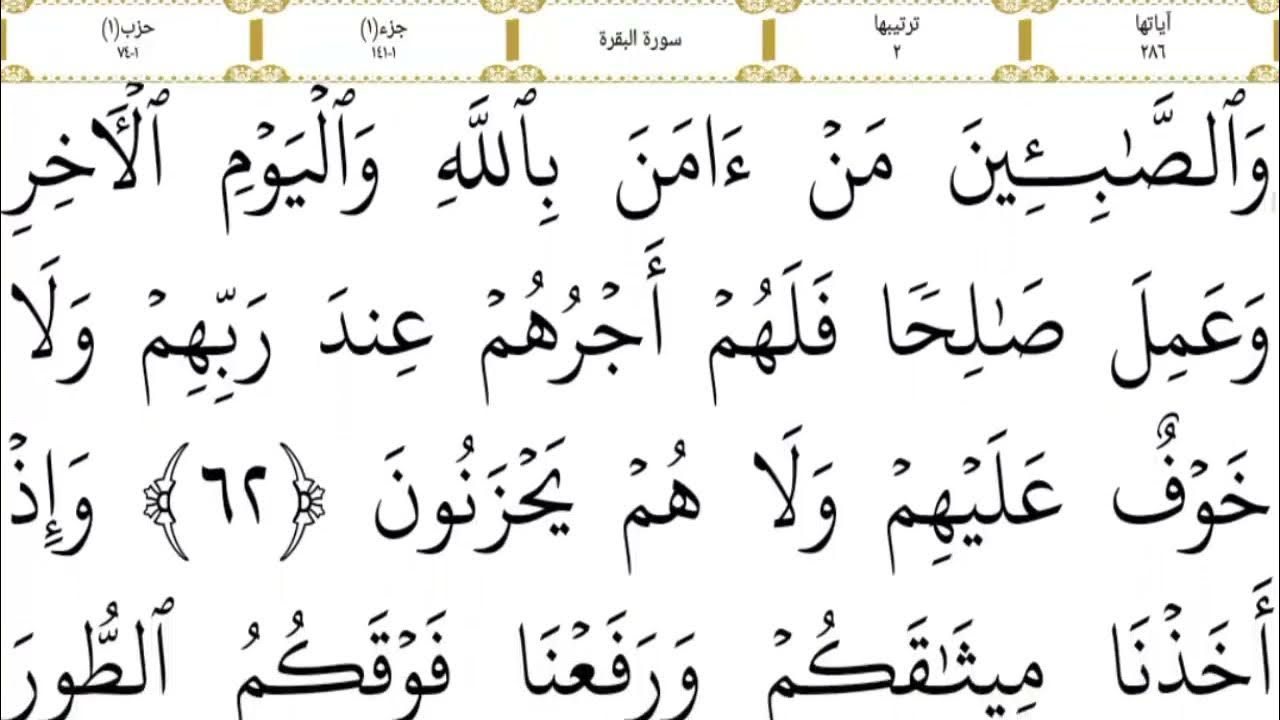 آياتها ترتيبها سورة البقرة جزء(١) حزب(١)
٢٨٦ ٢ ١-١٤١ ١-٧٤
وَٱلصَّـٰبِـِٔينَ مَنْ ءَامَنَ بِٱللَّهِ وَٱلْيَوْمِ ٱلْـَٔاخِرِ
وَعَمِلَ صَـٰلِحًا فَلَهُمْ أَجْرُهُمْ عِندَ رَبِّهِمْ وَلَا
خَوْفٌ عَلَيْهِمْ وَلَا هُمْ يَحْزَنُونَ ﴿٦٢﴾ وَإِذْ
أَخَذْنَا مِيثَـٰقَكُمْ وَرَفَعْنَا فَوْقَكُمُ ٱلطُّورَ